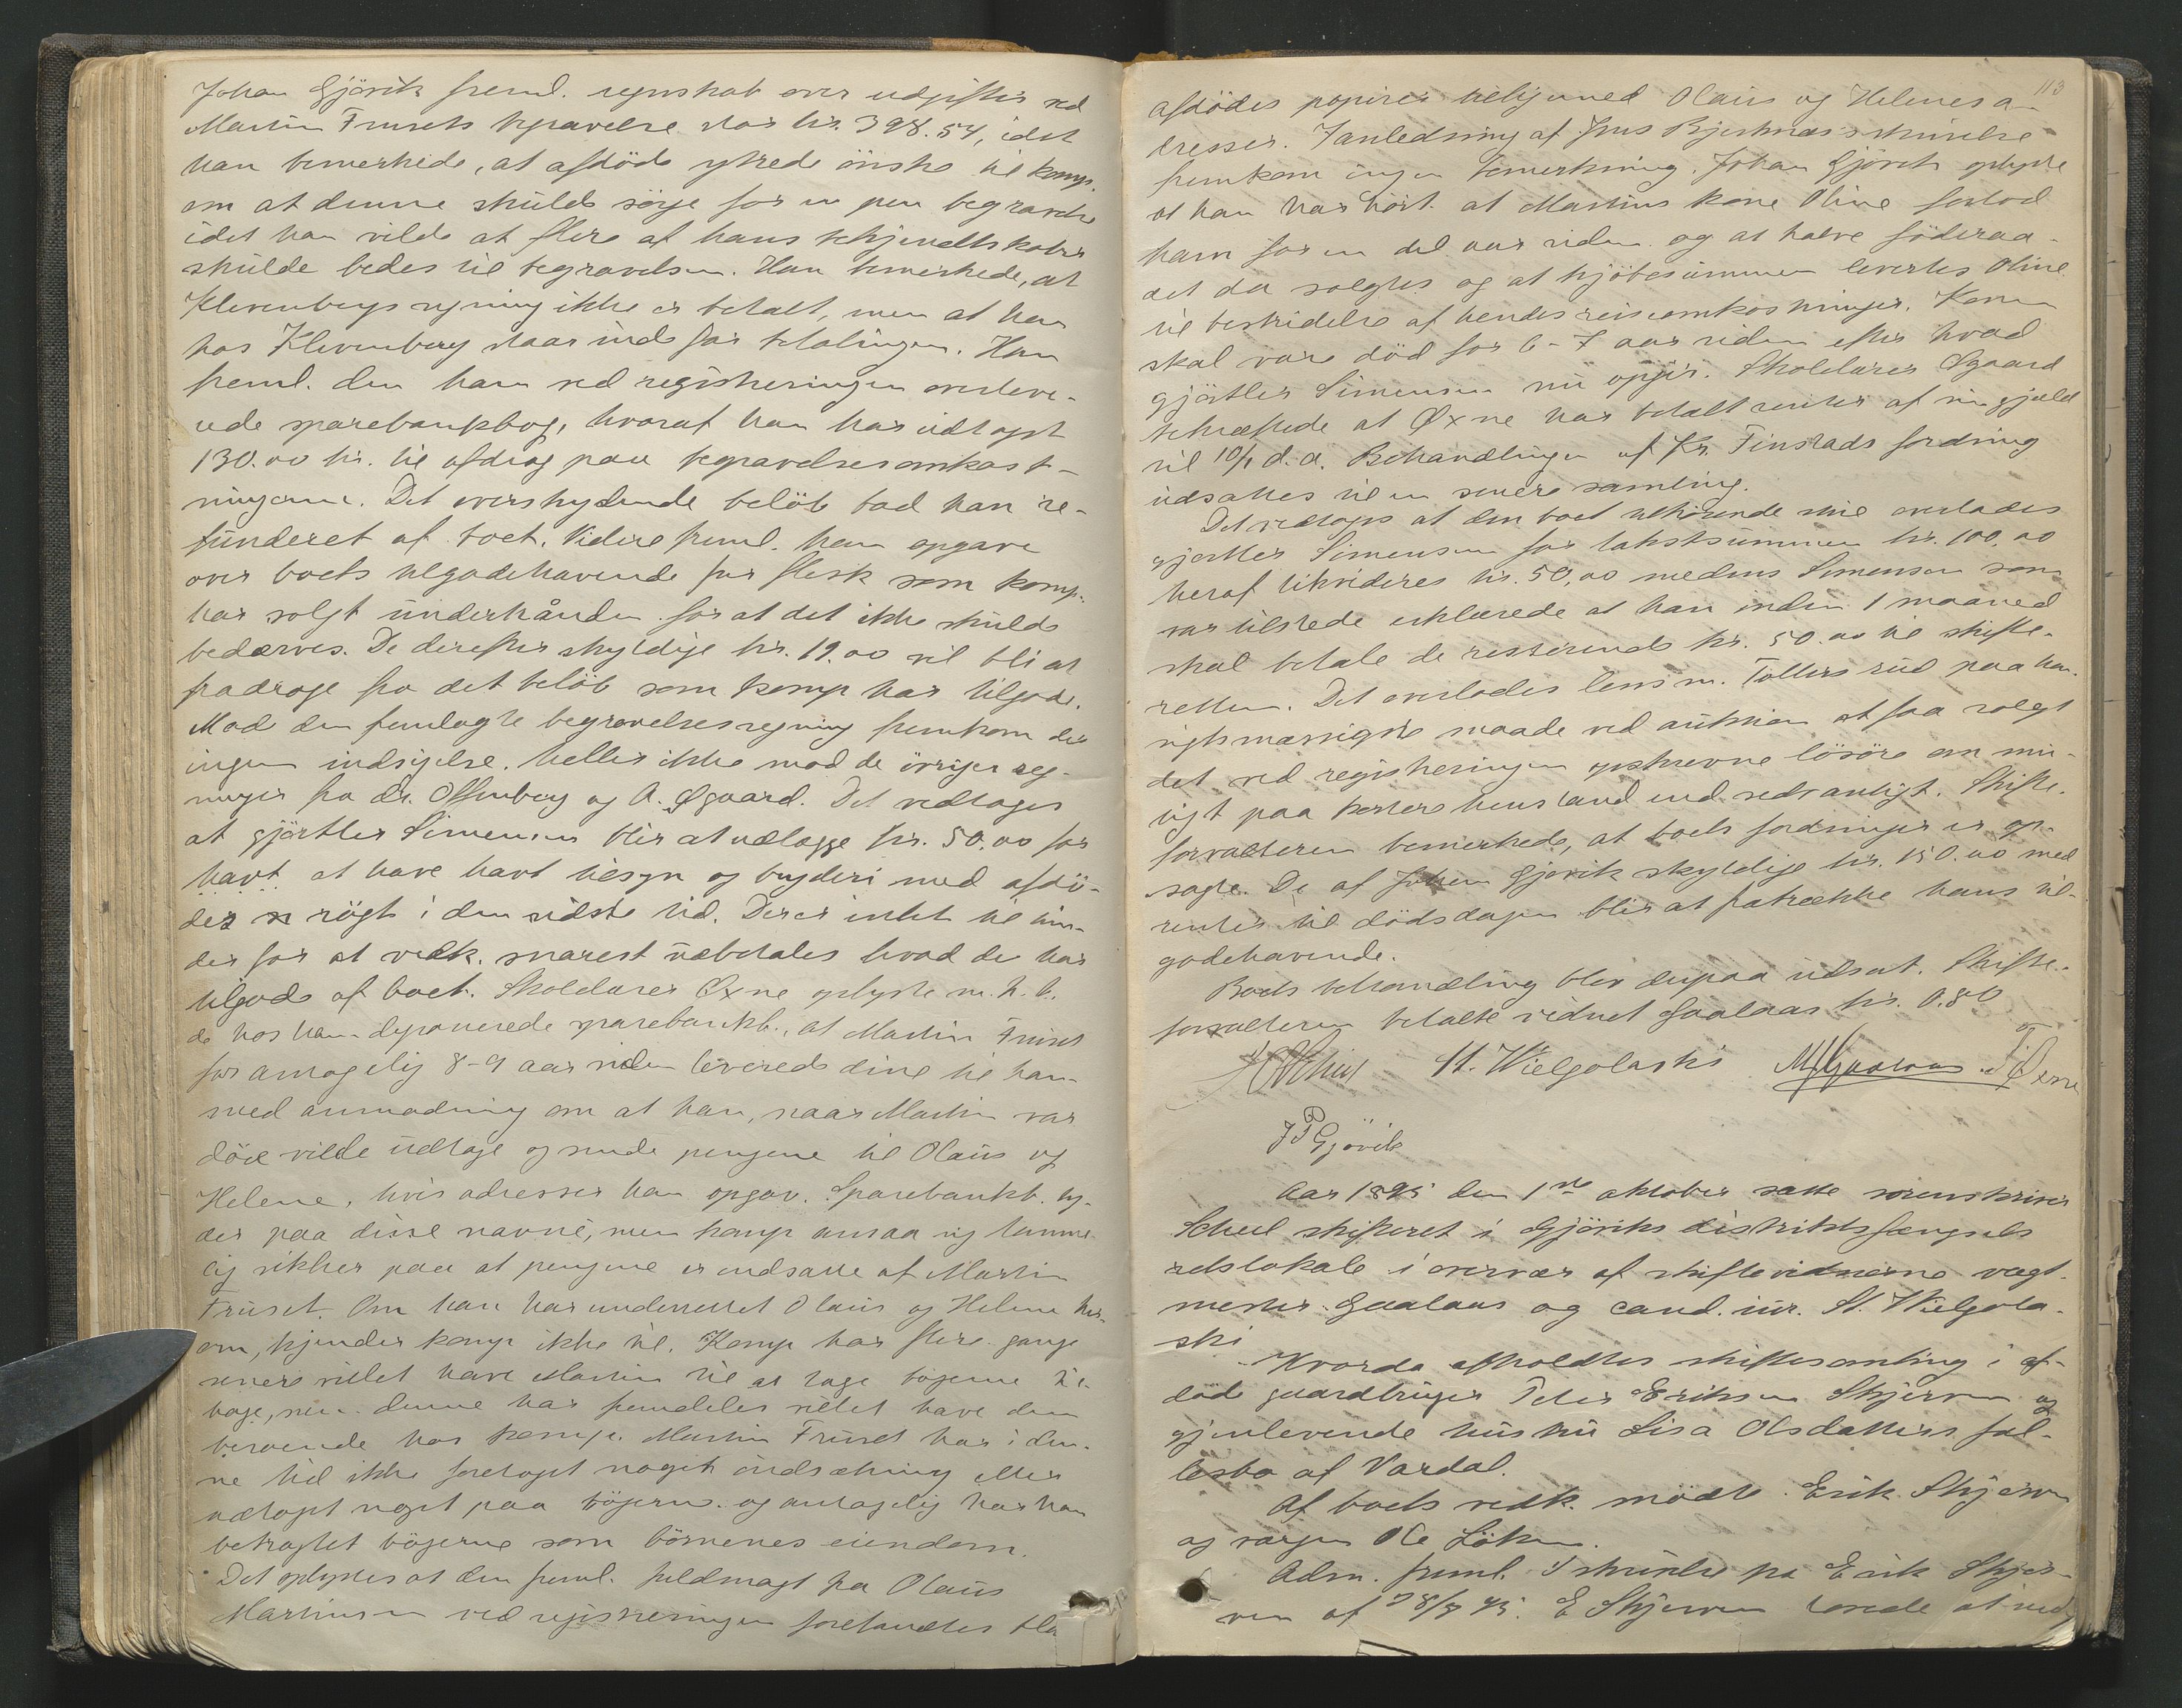 Johan Gjövik freml. regnskab over udgifter ved
Martin Frusets begravelse stor kr. 398.54, idet
han bemerkede, at afdöde ytrede önske til komp.
om at denne skulde sörge for en pen begravelse
idet han vilde at flere af hans bekjendtskaber
skulde bedes til begravelsen. Han bemerkede, at
Klevenbergs regning ikke er betalt, men at han
hos Klevenberg staar inde for betalingen. Han
freml. den ham ved registreringen overleve-
rede sparebankbog, hvoraf han har udtaget
130.00 kr. til afdrag paa begravelsesomkost-
ningerne. Det overskydende beløb bad han re-
funderet af boet. Videre freml. han opgave
over boets tilgodehavende for flesk som komp.
har solgt underhånden for at det ikke skulde
bedærves. De derefter skyldige kr. 19.00 vil bli at
fradrage fra det belöb som komp har tilgode.
Mod den fremlagte begravelsesregning fremkom der
ingen indsigelse, heller ikke mod de övrige reg-
ninger fra dr. Offenberg og A. Øgaard. Det vedtoges
at gjörtler Simensen blir at udlægge kr. 50.00 for
havt at have havt tilsyn og bryderi med afdö-
des rögt i den sidste tid. Der er intet til hin-
der for at vedk. snarest udbetales hvad de har
tilgode af boet. Skolelærer Øxne oplyste m. h. t.
de hos ham deponerede sparebankb., at Martin Fruset
for antagelig 8-9 aar siden leverede dine til ham
med anmodning om at han, naar Martin var
död vilde udtage og sende pengene til Olaus og
Helene, hvis adresser han opgav. Sparebankb. ly-
der paa disse navne, men komp ansaa sig temme-
lig sikker paa at pengene er indsatte af Martin
Fruset. Om han har underrettet Olaus og Helene her-
om, kjender komp ikke til. Komp har flere gange
senere villet have Martin til at tage bögerne til-
bage, men denne har fremdeles villet have dem
beroende hos komp. Martin Fruset har i den-
ne tid ikke foretaget nogen indsætning eller
udtaget noget paa bögerne og antagelig har han
betragtet bögerne som börnenes eiendom.
Det oplystes at den freml. fuldmagt fra Olaus
Martinsen ved registreringen forefandtes bla
113
afdödes papirer tilligemed Olaus og Helenes a-
dresser. I anledning af Jens Bjertnæs's skrivelse
fremkom ingen bemerkning. Johan Gjövik oplyste
at han har hört at Martins kone Oline forlod
ham for en del aar siden og at halve föderaa-
det da solgtes og at kjöbesummen levertes Oline
til bestridelse af hendes reiseomkostninger. Konen
skal være död for 6-7 aar siden efter hvad
gjörtler Simensen nu opgir. Skolelærer Øgaard
bekræftede at Øxne har betalt renter af sin gjæld
til 10/1 d. a. Behandlingen af Kr. Finstads fordring
udsattes til en senere samling.
Det vedtoges at den boet tilhörende mie overlades
gjørtler Simensen for takstsummen kr. 100,00
heraf likvideres kr. 50,00 medens Simensen som
var tilstede erklærede at han inden 1 maaned
skal betale de resterende kr. 50.00 til skifte-
retten. Det overlodes lensm. Tollersrud paa hen-
sigtsmæssigste maade ved auktion at faa solgt
det ved registreringen opskrevne lösöre om mu-
ligt paa kortere henstand end sedvanligt. Skifte-
forvalteren bemerkede, at boets fordringer er op-
sagte. De af Johan Gjövik skyldige kr. 150.00 med
renter til dödsdagen blir at fratrække hans til-
godehavende.
Boets behandling blev derpaa udsat. Skifte-
forvalteren betalte vidnet Gaalaas kr. 0.80
St. Wielgolaski MGaalaas. Øxne
J P Gjövik
Aar 1895 den 1ste oktober satte sorenskriver
Scheel skifteret i Gjöviks distriktsfængsels
retslokale i overvær af skiftevidnerne vagt-
mester Gaalaas og cand. iur. St. Wielgola-
ski
Hvorda afholdtes skiftesamling i af-
död gaardbruger Peter Eriksen Skjerven og
gjenlevende hustru Lisa Olsdatters fæl-
lesbo af Vardal.
Af boets vedk. mödte Erik Skjerven
og vergen Ole Löken.
Adm. freml. skrivelse fra Erik Skjer-
ven af 28/9 95. E Skjerven lovede at ved